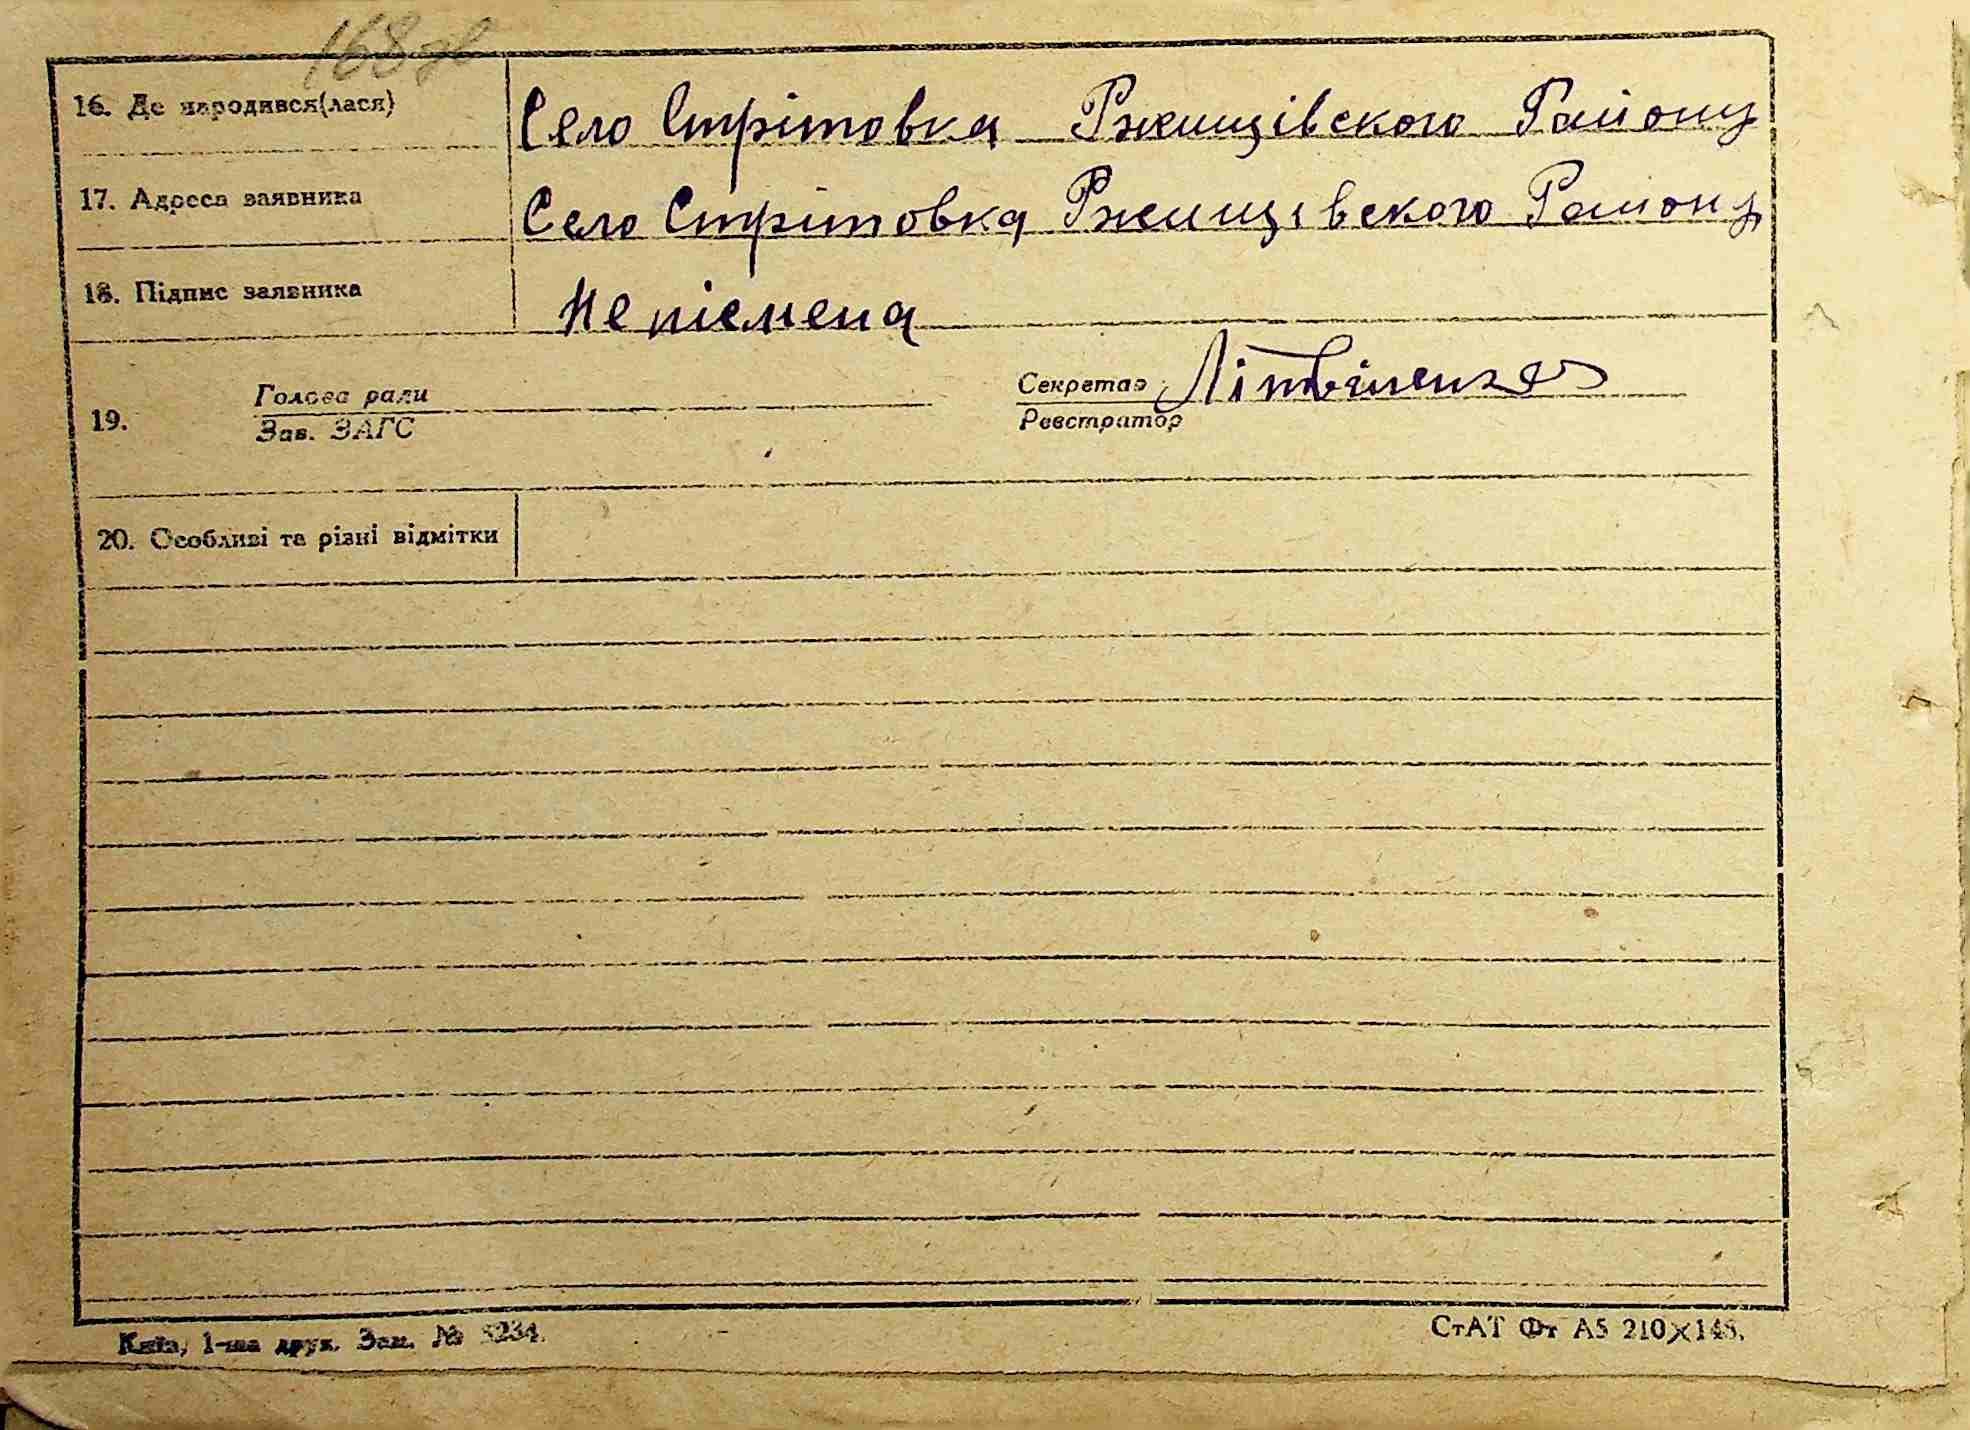 168 зв
16. Де народився(лася) Село Стрітовка Ржищівского Району
17. Адреса заявника Село Стрітовка Ржищівского Району
18. Підпис заявника Непісмена
Голова ради Секретар Літвіненко
19.
Зав. ЗАГС Реєстратор
20. Особливі та різні відмітки
Київ, 1-ша друк. Зам. № 5234. СтАТ Фт А5 210×148.